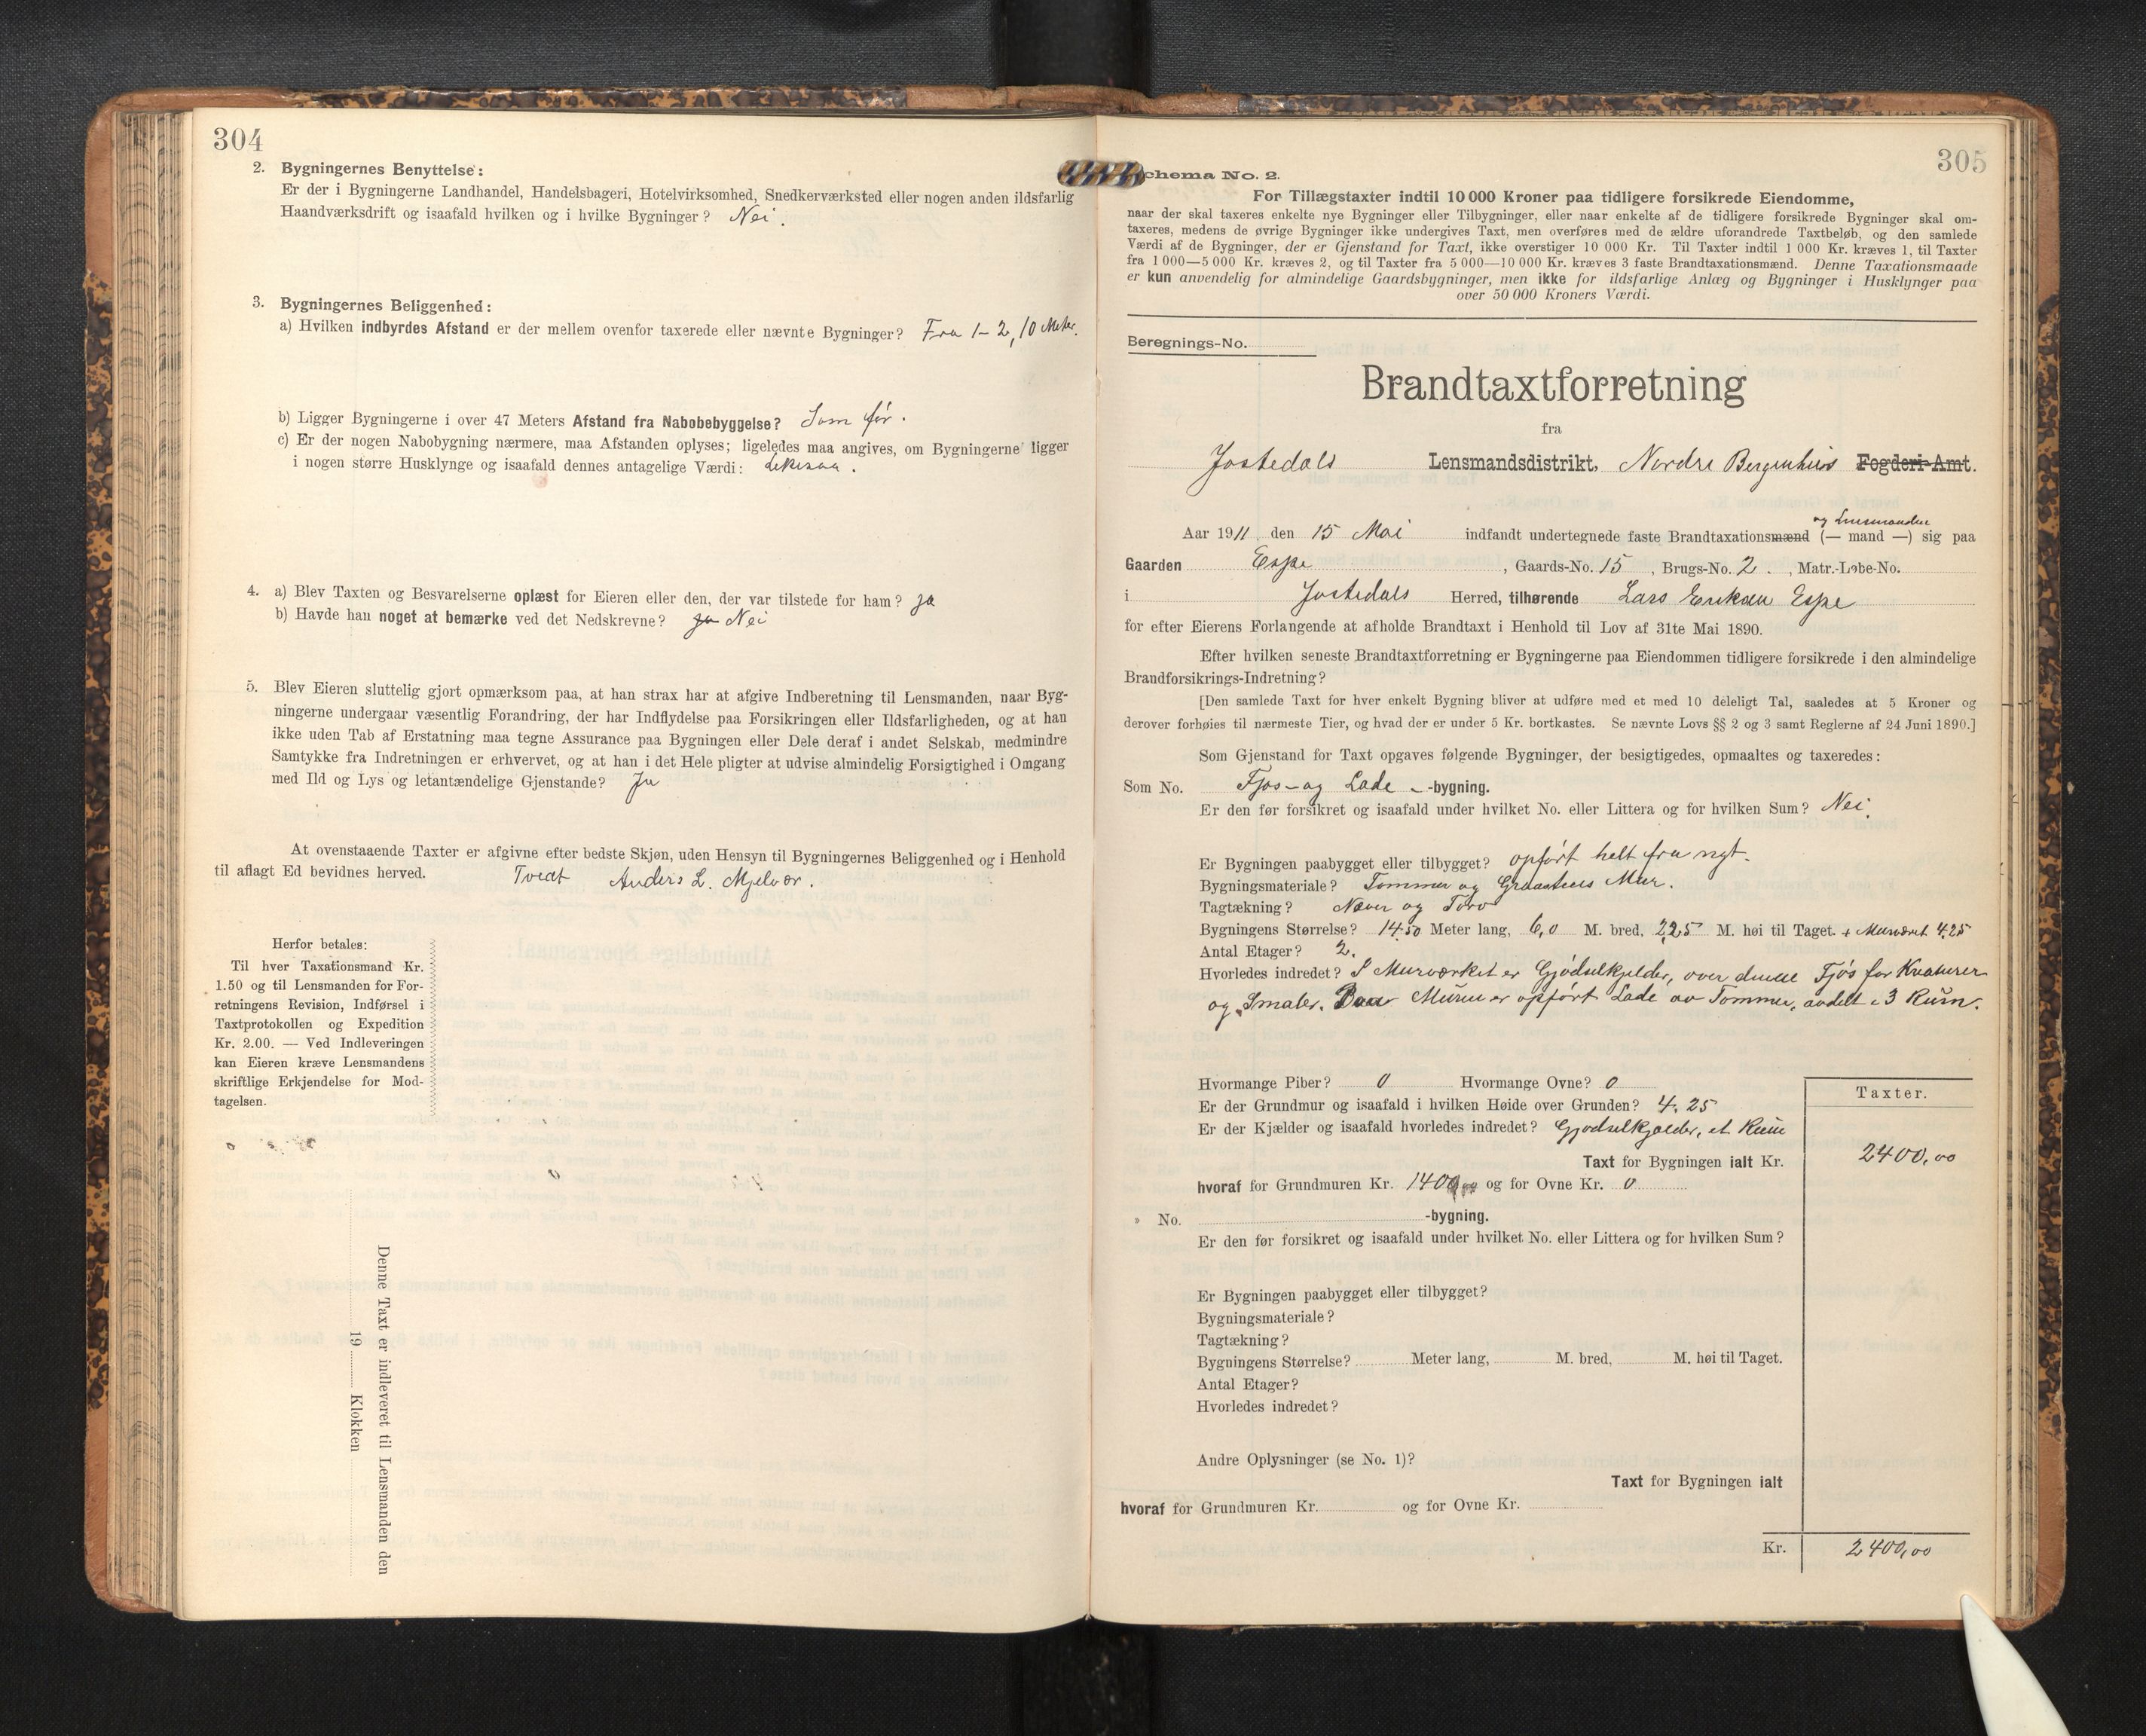 304
2. Bygningernes Benyttelse:
Er der i Bygningerne Landhandel, Handelsbageri, Hotelvirksomhed, Snedkerværksted eller nogen anden ildsfarlig
Haandværksdrift og isaafald hvilken og i hvilke Bygninger? Nei.
3. Bygningernes Beliggenhed:
a) Hvilken indbyrdes Afstand er der mellem ovenfor taxerede eller nævnte Bygninger? Fra 1-2, 10 Meter.
b) Ligger Bygningerne i over 47 Meters Afstand fra Nabobebyggelse? Som før.
c) Er der nogen Nabobygning nærmere, maa Afstanden oplyses; ligeledes maa angives, om Bygningerne ligger
i nogen større Husklynge og isaafald dennes antagelige Værdi: Likesaa.
4. a) Blev Taxten og Besvarelserne oplæst for Eieren eller den, der var tilstede for ham? Ja
b) Havde han noget at bemærke ved det Nedskrevne? Ja Nei
5. Blev Eieren sluttelig gjort opmærksom paa, at han strax har at afgive Indberetning til Lensmanden, naar Byg-
ningerne undergaar væsentlig Forandring, der har Indflydelse paa Forsikringen eller Ildsfarligheden, og at han
ikke uden Tab af Erstatning maa tegne Assurance paa Bygningen eller Dele deraf i andet Selskab, medmindre
Samtykke fra Indretningen er erhvervet, og at han i det Hele pligter at udvise almindelig Forsigtighed i Omgang
med Ild og Lys og letantændelige Gjenstande? Ja
At ovenstaaende Taxter er afgivne efter bedste Skjøn, uden Hensyn til Bygningernes Beliggenhed og i Henhold
til aflagt Ed bevidnes herved. Tvedt Anders L. Mjelvær.
Herfor betales:
Til hver Taxationsmand Kr.
1.50 og til Lensmanden for For-
retningens Revision, Indførsel i
Taxtprotokollen og Expedition
Kr. 2.00. — Ved Indleveringen
kan Eieren kræve Lensmandens
skriftlige Erkjendelse for Mod-
tagelsen.
Denne Taxt er indleveret til Lensmanden den
19 Klokken
305
chema No. 2.
For Tillægstaxter indtil 10 000 Kroner paa tidligere forsikrede Eiendomme,
naar der skal taxeres enkelte nye Bygninger eller Tilbygninger, eller naar enkelte af de tidligere forsikrede Bygninger skal om-
taxeres, medens de øvrige Bygninger ikke undergives Taxt, men overføres med de ældre uforandrede Taxtbeløb, og den samlede
Værdi af de Bygninger, der er Gjenstand for Taxt, ikke overstiger 10 000 Kr. Til Taxter indtil 1 000 Kr. kræves 1, til Taxter
fra 1 000—5 000 Kr. kræves 2, og til Taxter fra 5 000—10 000 Kr. kræves 3 faste Brandtaxationsmænd. Denne Taxationsmaade
er kun anvendelig for almindelige Gaardsbygninger, men ikke for ildsfarlige Anlæg og Bygninger i Husklynger paa
over 50 000 Kroners Værdi.
Beregnings-No.
Brandtaxtforretning
fra
Jostedals Lensmandsdistrikt, Nordre Bergenhus Fogderi-Amt.
og Lensmanden
Aar 1911 den 15 Mai indfandt undertegnede faste Brandtaxationsmænd (— mand —) sig paa
Gaarden Espe, Gaards-No. 15, Brugs-No. 2., Matr.-Løbe-No.
i Jostedals Herred, tilhørende Lars Eriksen Espe
for efter Eierens Forlangende at afholde Brandtaxt i Henhold til Lov af 31te Mai 1890.
Efter hvilken seneste Brandtaxtforretning er Bygningerne paa Eiendommen tidligere forsikrede i den almindelige
Brandforsikrings-Indretning?
[Den samlede Taxt for hver enkelt Bygning bliver at udføre med et med 10 deleligt Tal, saaledes at 5 Kroner og
derover forhøies til nærmeste Tier, og hvad der er under 5 Kr. bortkastes. Se nævnte Lovs §§ 2 og 3 samt Reglerne af 24 Juni 1890.]
Som Gjenstand for Taxt opgaves følgende Bygninger, der besigtigedes, opmaaltes og taxeredes:
Som No. Fjøs- og Lade - -bygning.
Er den før forsikret og isaafald under hvilket No. eller Littera og for hvilken Sum? Nei.
Er Bygningen paabygget eller tilbygget? opført helt fra nyt.
Bygningsmateriale? Tømmer og Graastens Mur.
Tagtækning? Næver og Torv
Bygningens Størrelse? 14.50 Meter lang, 6,0 M. bred, 2,25 M. høi til Taget. + Murværk 4.25
Antal Etager? 2.
Hvorledes indredet? I Murværket er Gjødselkjelder, over denne Fjøs for Kreaturer
og Smaler. Murene er opført Lade av Tømmer, avdelt i 3 Rum.
Hvormange Piber? 0 Hvormange Ovne? 0
Er der Grundmur og isaafald i hvilken Høide over Grunden? 4.25
Er der Kjælder og isaafald hvorledes indredet? Gjødselkjælder, et Rum
Taxter.
Taxt for Bygningen ialt Kr. 2400,00
hvoraf for Grundmuren Kr. 1400 og for Ovne Kr. 0
» No. -bygning.
Er den før forsikret og isaafald under hvilket No. eller Littera og for hvilken Sum?
Er Bygningen paabygget eller tilbygget?
Bygningsmateriale?
Tagtækning?
Bygningens Størrelse? Meter lang, M. bred, M. høi til Taget.
Antal Etager?
Hvorledes indredet?
Andre Oplysninger (se No. 1)?
Taxt for Bygningen ialt
hvoraf for Grundmuren Kr. og for Ovne Kr.
Kr. 2400,00